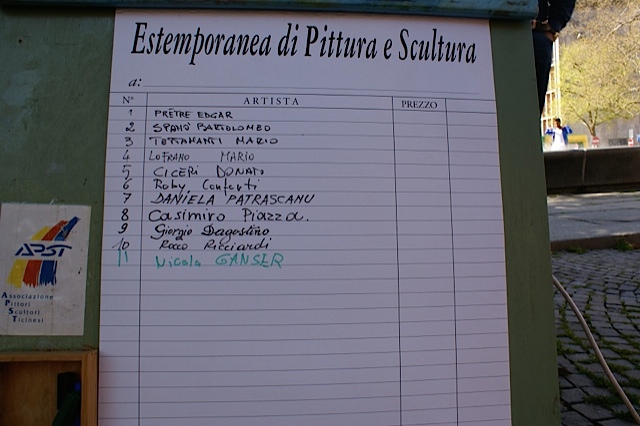 Estemporanea di Pittura e Scultura
a:
N° ARTISTA PREZZO
1 PRÊTRE EDGAR
2 SPANÒ BARTOLOMEO
3 TETTAMANTI MARIO
4 LOFRANO MARIO
5 CICERI DONATO
6 Roby Conforti
7 DANIELA PATRASCANU
8 Casimiro Piazza.
9 Giorgio Dagostino
10 Rocco Ricciardi
11 Nicola GANSER
APST
Associazione
Pittori
Scultori
Ticinesi